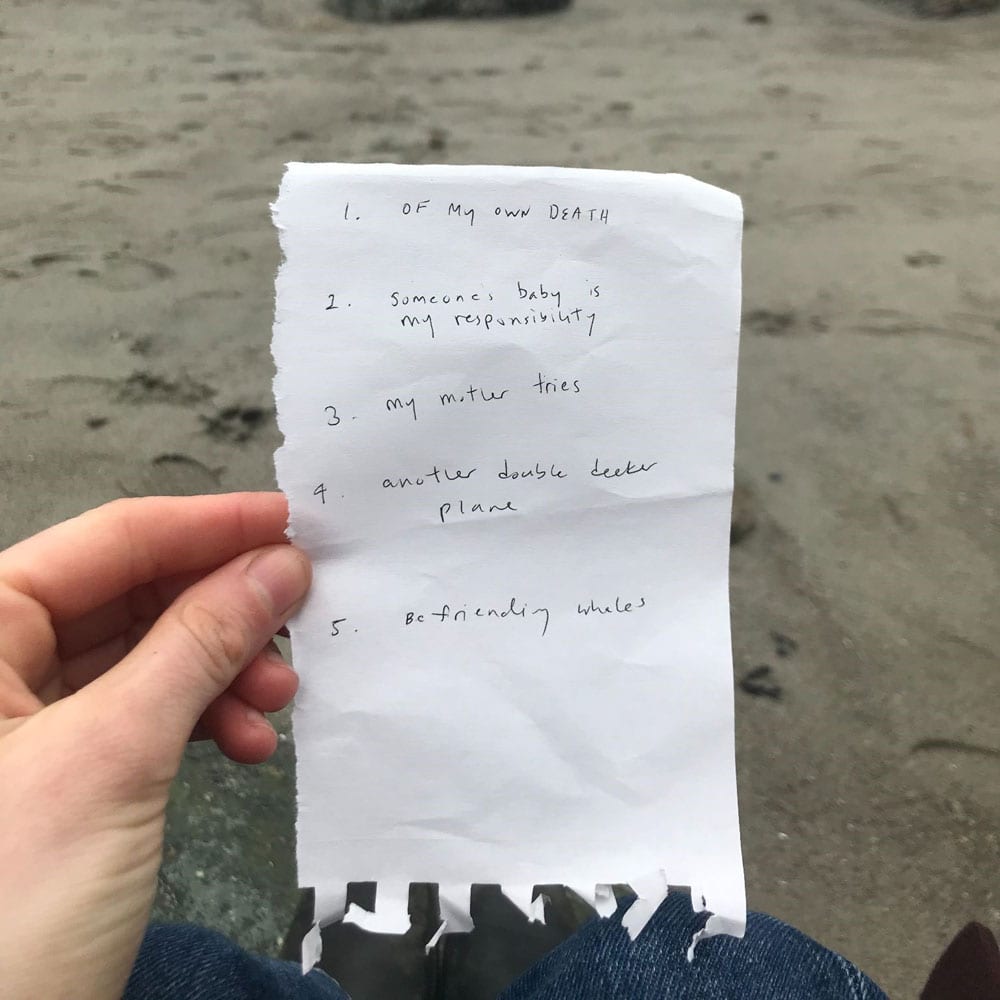 1. OF MY OWN DEATH
2. Someone's baby is
my responsibility
3. my mother tries
4. another double decker
plane
5. Befriending whales